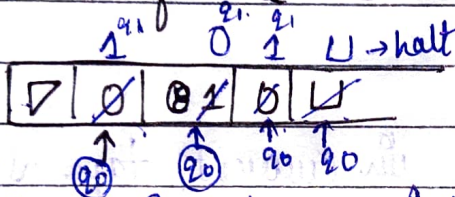 1 q1 0 q1 1 q1 ⊔ → halt
▷ 0 1 0 ⊔
q0 q0 q0 q0